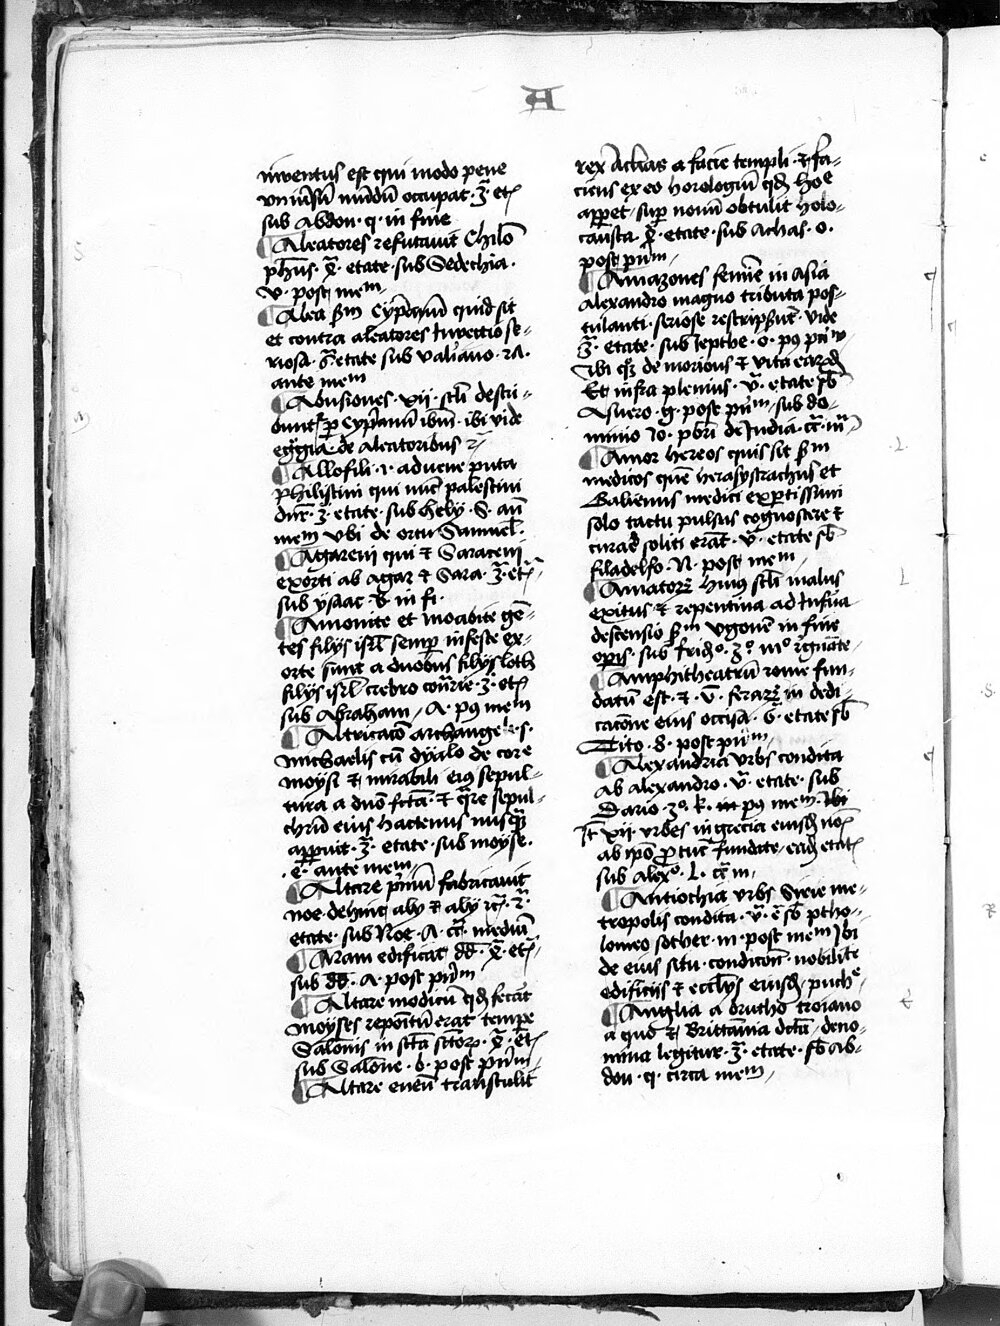 A
inventus est qui modo pene
universū mūdū occupat · 3̄ · etꝭ
sub Abdon · q · in fine
Aleatores refutavit Chilō
ph̄us · 4̄ · etate · sub Sedechia ·
v · post mem
Alea scd̄m Cyp̄anū quid sit
et contra aleatores Invectio se-
riosa · 6̄ · etate sub valīano · 2A ·
ante mem
Abusiones · xij · scl̄i descri-
bunt̄ ꝑ Cyp̄anū ibm̄ · ibi vide
de aleatoribus
Allofili · i · advene puta
philistini qui nūc palestini
dn̄r · 3̄ · etate · sub hely · S · an̄
mem ubi de ortu Samuel̄ ·
Agareni qui ⁊ Saraceni
exorti ab agar ⁊ Sara · 3̄ · etꝭ
sub ysaac · B · in fi ·
Amonite et moabite gē-
tes filijs isrl̄ semꝑ infeste ex-
orte sunt a duobus filijs loth
filijs isrl̄ crebro · 3̄ · etꝭ
sub Abraham / A · pꝯ mem
Altricacō archange · s ·
michaelis cū dyal̄o de core
moysi ⁊ mirabili eiꝯ sepul-
tura a dn̄o fc̄ta · ⁊ q̄re sepul-
chrū eius hactenus nusq̄
apꝑuit · 3̄ · etate · sub moyse ·
· e · ante mem
Altare p̄mū fabricavit
noe dehinc alij ⁊ alij · 2̄ ·
etate · sub Noe · A · cc̄a mediū
Aram edificat dd̄ · 4̄ · etꝭ
sub dd̄ · A · post pn̄m
Altare modicū qd̄ fecāt
moyses reponitū erat tempe
Salomīs in sc̄ta sc̄torꝝ · 4̄ · etꝭ
sub Salōne · b · post pn̄m
Altare eneū transtulit
rex Achas a facie templi · ⁊ fa-
ciens ex eo horologiū qd̄ hoe
apꝑet / suꝑ novū obtulit holo-
causta · 4̄ · etate · sub Achas · o ·
post pn̄m
Amazones femīe in Asia
Alexandro magno tributa pos-
tulanti · seriose rescripserūt · vide
3̄ · etate · sub Iepthe · o · pꝯ pn̄m
ibi de moribus ⁊ vita earꝝ
Et infra plenius · v̄ · etate sb̄
Asuero · g · post pn̄m / sub do-
minio Io · pbri de India · cc̄a · m̄
Amor hereos quis sit scd̄m
medicos quē herasystrachus et
Galienus medici exptissimi
solo tactu pulsus cognoscere ⁊
curare soliti erāt · v̄ · etate sb̄
filadelfo · N · post mem
Amatorꝝ huiꝯ scl̄i malus
exitus ⁊ repentina ad Infna
descensio scd̄m ugonē in fine
opis · sub fridꝰ · 3ꝰ · mꝰ regnāte
Amphitheatrū rome fun-
datū est · ⁊ · v̄ · ferarꝝ in dedi-
catōne eius occisa · 6̄ · etate sb̄
Tito · d · post pn̄m
Alexandria urbs condita
ab alexandro · v̄ · etate · sub
Dario · 3ꝰ · k · pꝯ mem · Ibi
xij · urbes in grecia
ab ipō fundate · etatꝭ
sub alexꝰ · L · cc̄a m
Antiochia urbs Sirie me-
tropolis condita · v̄ · ē sb̄ ptho-
lomeo sother · m · post mem Ibi
de eius situ · condicōn̄ · nobilitē
edificijs ⁊ ecclijs eiusd̄ / puch̄e
Anglia a brutho troiano
a quo ⁊ Brittannia dc̄ta / deno-
mina legitur · 3̄ · etate · sb̄ Ab-
don · q · circa mem